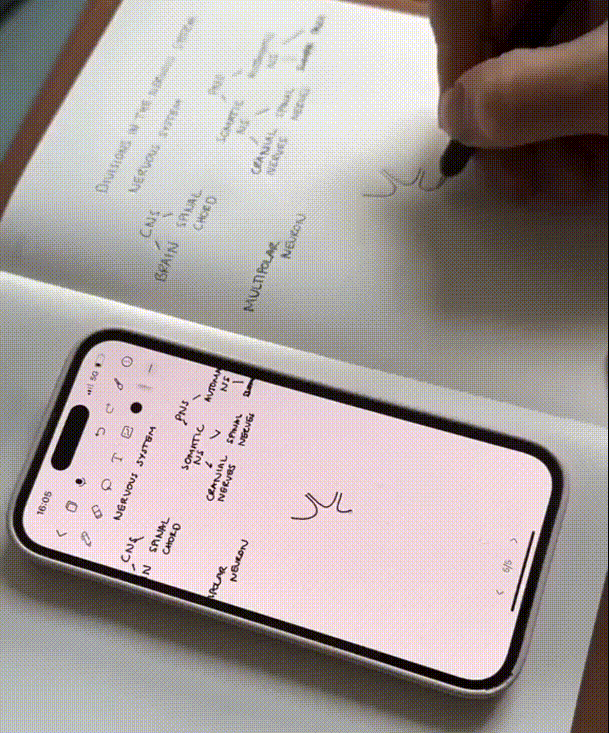 DIVISIONS IN THE NERVOUS SYSTEM
NERVOUS SYSTEM
CNS
BRAIN
SPINAL
CHORD
PNS
SOMATIC
NS
AUTONOMIC
NS
CRANIAL
NERVES
SPINAL
NERVES
MULTIPOLAR
NEURON
16:05
5G
T
NERVOUS SYSTEM
CNS
N
SPINAL
CHORD
PNS
SOMATIC
NS
AUTONOM
NS
CRANIAL
NERVES
SPINAL
NERVES
IPOLAR
NEURON